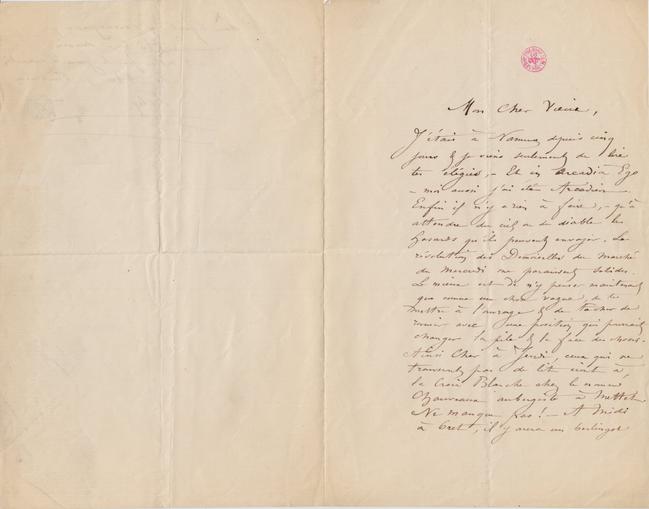 Mon Cher Vieux,
J'étais à Namur depuis cinq
jours & je viens seulement de lire
tes élégies, - Et in Arcadia Ego
- moi aussi j'ai été Arcadien
Enfin il n'y a rien à faire, - qu'à
attendre du ciel ou du diable les
hasards qu'ils peuvent envoyer. Les
révolutions des Demoiselles du Marché
du mercredi me paraissent solides.
Le mieux est de n'y penser maintenant
que comme une chose vague, de te
mettre à l'ouvrage & de tâcher de
venir avec une position qui pourrait
changer la pile & la face des choses.
Ainsi Cher à Jeudi, ceux qui ne
trouveront pas de lit iront à
la Croix Blanche chez le nommé
aubergiste à Mettet.
Ne manque pas! - A Midi
à il y aura un berlingot